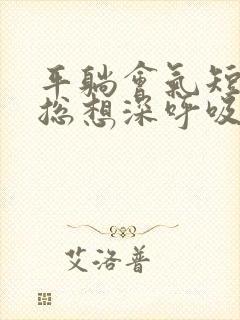 平躺會氣短
總想深呼吸
艾洛普